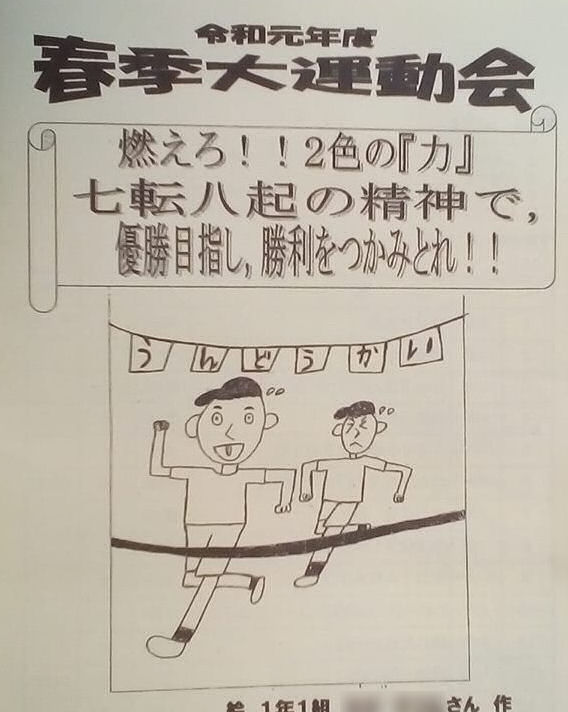 令和元年度
春季大運動会
燃えろ！！2色の『力』
七転八起の精神で,
優勝目指し,勝利をつかみとれ！！
うんどうかい
絵 1年1組 さん 作